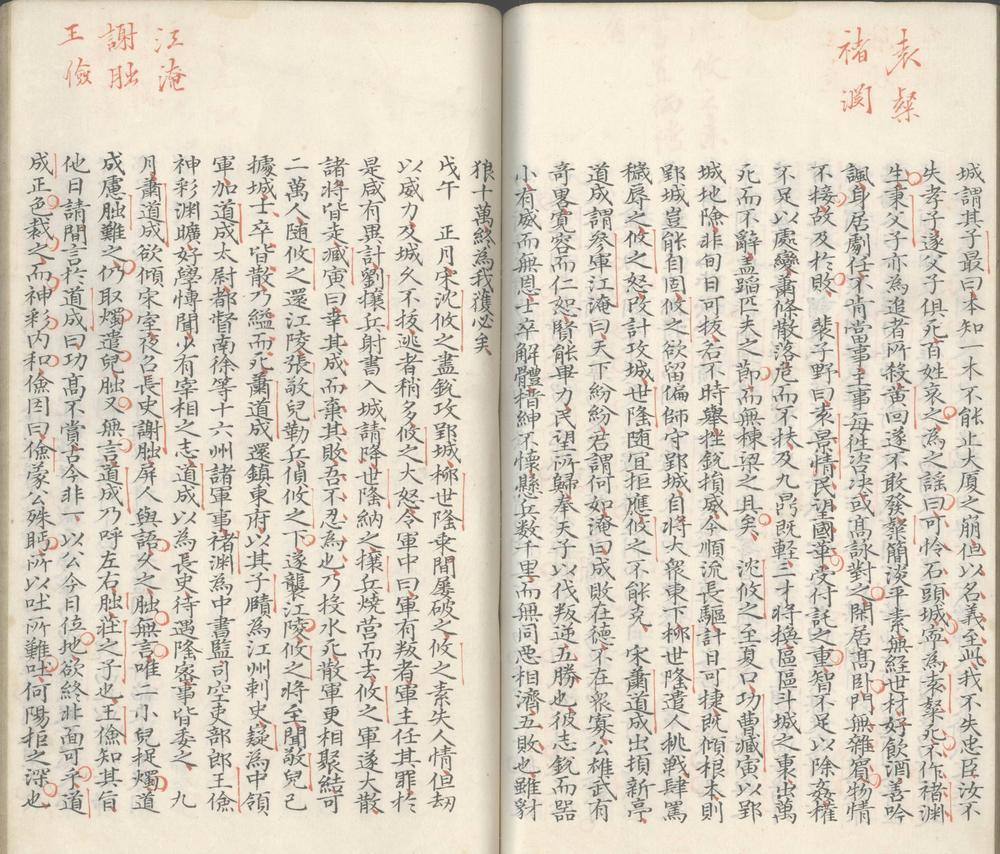 袁粲
褚淵
城謂其子最曰本知一木不能止大厦之崩但以名義至此我不失忠臣汝不
失孝子遂父子俱死百姓哀之為之謡曰可怜石頭城寧為袁粲死不作褚淵
生秉父子亦為追者所殺黄回遂不敢發粲簡淡平素無経世材好飲酒善吟
諷身居劇任不肯當事主事每往咨决或髙詠對之閑居髙卧門無雜賓物情
不接故及於敗裴子野曰袁景情民望國華受付託之重智不足以除姦權
不足以處變蕭條散落危而不扶及九鼎既輕三才将換區區斗城之裏出萬
死而不辭盖蹈匹夫之節而無棟梁之具矣沈攸之至夏口功曹臧寅以郢
城地險非旬日可拔若不時舉挫銳損威今順流長驅計日可捷既傾根本則
郢城豈能自固攸之欲留偏師守郢城自将大衆東下柳世隆遣人桃戦肆罵
穢辱之攸之怒改計攻城世隆随宜拒應攸之不能克宋蕭道成出損新亭
道成謂叅軍江淹曰天下紛紛君謂何如淹曰成敗在德不在衆寡公雄武有
竒畧寛容而仁恕賢能畢力民望所歸奉天子以伐叛逆五勝也彼志銳而器
小有威而無恩士卒解體搢紳不懷懸兵数千里而無同恶相濟五敗也雖豺
江淹
謝朏
王儉
狼十萬終為我獲必矣
戊午 正月宋沈攸之盡銳攻郢城柳世隆乗間屡破之攸之素失人情但刼
以威力及城久不拔逃者稍多攸之大怒令軍中曰軍有叛者軍主任其罪於
是咸有異計劉攘兵射書入城請降世隆納之攘兵焼营而去攸之軍遂大散
諸将皆走臧寅曰幸其成而棄其敗吾不忍為也乃投水死散軍更相聚結可
二萬人随攸之還江陵張敬兒勒兵偵攸之下遂襲江陵攸之将至聞敬兒已
據城士卒皆散乃縊而死蕭道成還鎮東府以其子賾為江州刺史嶷為中領
軍加道成太尉都督南徐等十六州諸軍事褚淵為中書監司空吏部郎王儉
神彩淵曠好學愽聞少有宰相之志道成以為長史待遇隆宻事皆委之 九
月蕭道成欲傾宋室夜召長史謝朏屏人與語久之朏無言唯二小兒捉燭道
成慮朏難之仍取燭遣兒朏又無言道成乃呼左右朏荘之子也王儉知其旨
他日請間言於道成曰功髙不賞古今非一以公今日位地欲終北面可乎道
成正色裁之而神彩内和儉因曰儉蒙公殊眄所以吐所難吐何陽拒之深也